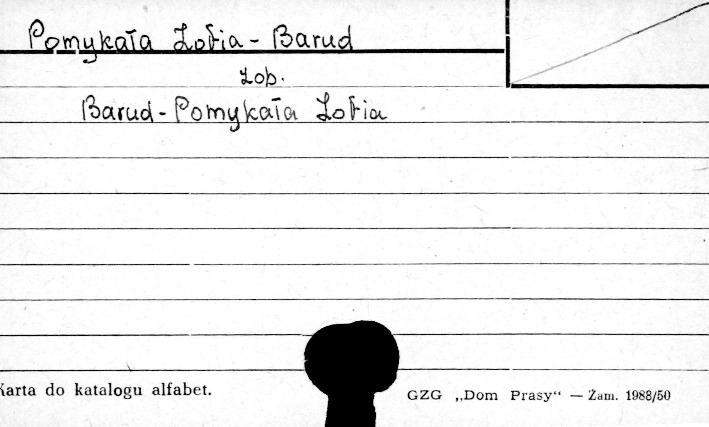 Pomykała Zofia - Barud
zob.
Barud - Pomykała Zofia
Karta do katalogu alfabet.
GZG „Dom Prasy“ — Zam. 1988/50